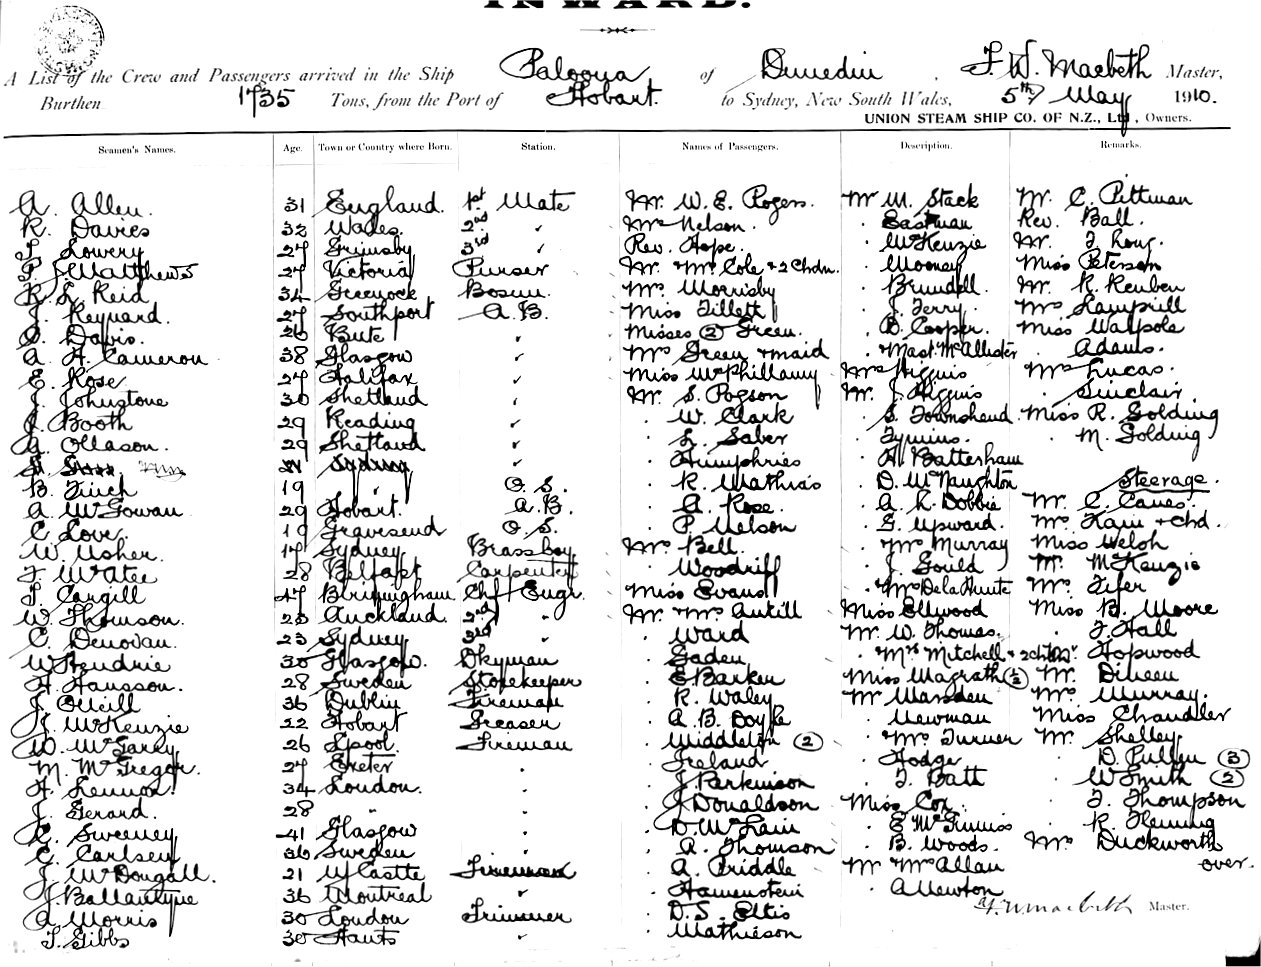 INWARD.
A List of the Crew and Passengers arrived in the Ship Paloona of Dunedin, F. W. Macbeth Master,
Burthen 1735 Tons, from the Port of Hobart. to Sydney, New South Wales, 5th May 1910.
UNION STEAM SHIP CO. OF N.Z., Ltd, Owners.
Seamen's Names. Age. Town or Country where Born. Station. Names of Passengers. Description. Remarks.
A. Allen. 31 England. 1st Mate Mr. W. E. Rogers. Mr M. Stack Mr. C. Pittman
R. Davies 32 Wales. 2nd " Mrs Nelson. . Eastman Rev. Ball.
Lowery 27 Grimsby 3rd " Rev. Hope. . McKenzie Mr. J. Long.
P. J. Matthews 27 Victoria Purser Mr. & Mrs Cole & 2 Chdn. . Mooney Miss Peterson
R. L. Reid 34 Greenock Bosun. Mrs Morrisby . Brundell Mr. R. Reuben
J. Keyuard. 27 Southport A.B. Miss Tillett . J. Terry. Mrs
Davis. 26 Bute " Misses (2) Green. . Cooper. Miss Walpole
A. H. Cameron 38 Glasgow " Mrs Green & maid . Mast. McAllister . Adams.
E. Rose 27 Halifax " Miss McPhillamy Mrs Higgins Mrs Lucas.
J. Johnstone 30 Shetland " Mr. S. Pogson Mr. J. Higgins . Sinclair.
J. Booth 29 Reading " . W. Clark . S. Townshend. Miss R. Golding
A. Ollason. 29 Shetland " . L. Saber . . M. Golding
Sydney " . Humphries . H. Batterham
B. Finch 19 " O.S. . R. Mathias . D. McNaughton Steerage.
A. McGowan 29 Hobart. A.B. . A. Rose. . A. L. Dobbie Mr. C. Canes.
C. Love. 19 Gravesend O.S. . P. Nelson . G. Upward. Mrs Ham & chd.
W. Usher. 17 Sydney Brassboy Mrs Bell. . Mrs Murray Miss Welsh
28 Belfast Carpenter . Woodriff . J. Gould Mr. McKenzie
Cargill 47 Birmingham Chf Engr. Miss Evans . Mrs De la Hunte Mrs. Fifer
W. Thomson. 25 Auckland. 2nd " Mr. Mrs Antill Miss Ellwood Miss B. Moore
C. Denovan. 23 Sydney 3rd " . Ward Mr. W. Thomas. . J. Hall
W. Hendrie 30 Glasgow. Dkyman . Gaden . Mrs Mitchell & 2 ch. Mr. Hopwood
H. Hansson. 28 Sweden Storekeeper . E. Barker Miss Magrath (2) Mr. Dineen
J. O'Neill 36 Dublin Fireman . R. Waley Mr Marsden Mrs. Murray.
J. McKenzie 22 Hobart Greaser . A. B. Doyle . Newman Miss Chandler
W. McGarry 26 Lpool. Fireman . Middleton (2) . Mrs Turner Mr. Shelley
M. McGregor. 27 Exeter . . Ireland . Hodge . D. Pullen (3)
H. Lennox. 34 London. . . J. Parkinson . J. Batt . W. Smith (2)
J. Gerard. 28 " . . J. Donaldson Miss Cox. . J. Thompson
Sweeney 41 Glasgow . . D. McLain . E McGinniss . R. Fleming
C. Carlsen 36 Sweden . . A. Thomson . B. Woods. Mrs Duckworth
J. McDougall. 21 N/Castle Fireman . A. Priddle Mr Mrs Allan over.
J. Ballantyne 36 Montreal " . Hamenstein . A Newton
A. Morris 30 London Trimmer . D. S. Elkis F. W. Macbeth Master.
Gibbs 30 Hants " . Mathieson